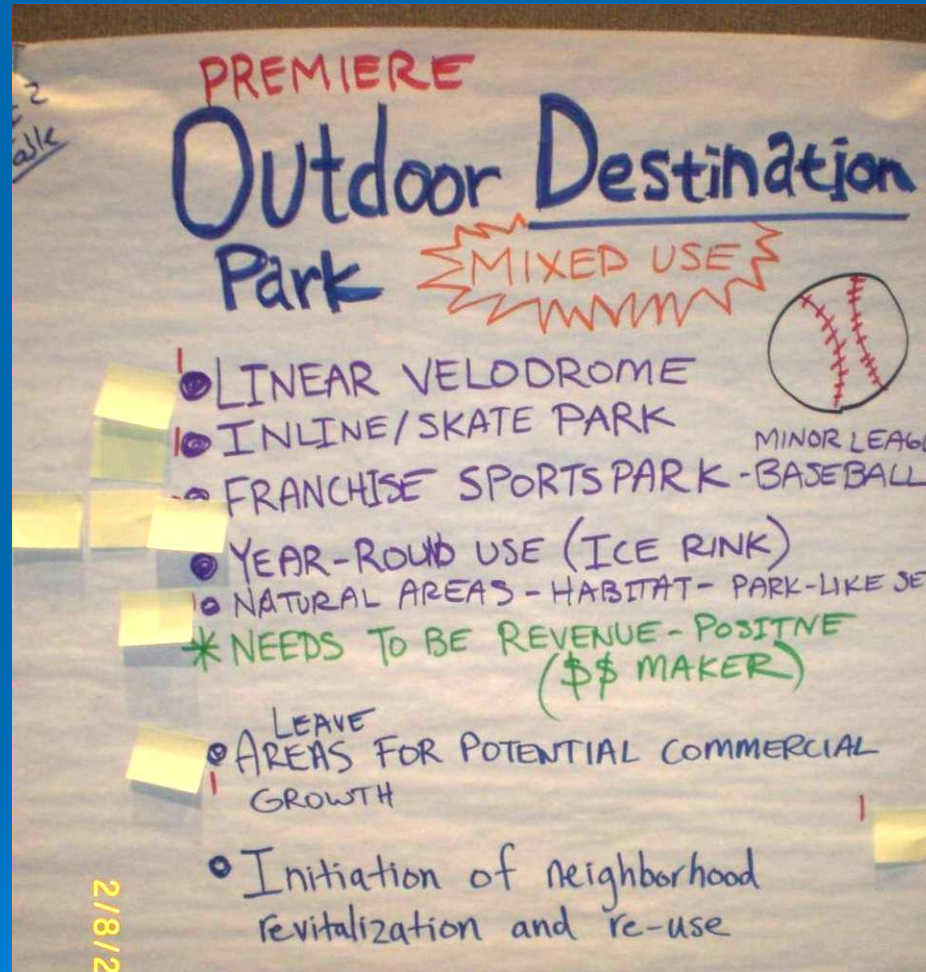 PREMIERE
Outdoor Destination
Park MIXED USE
LINEAR VELODROME
INLINE/SKATE PARK
MINOR LEAGU
FRANCHISE SPORTS PARK - BASEBALL
YEAR-ROUND USE (ICE RINK)
NATURAL AREAS - HABITAT - PARK-LIKE SE
* NEEDS TO BE REVENUE-POSITIVE
($$ MAKER)
LEAVE
AREAS FOR POTENTIAL COMMERCIAL
GROWTH
Initiation of neighborhood
revitalization and re-use
2/8/2